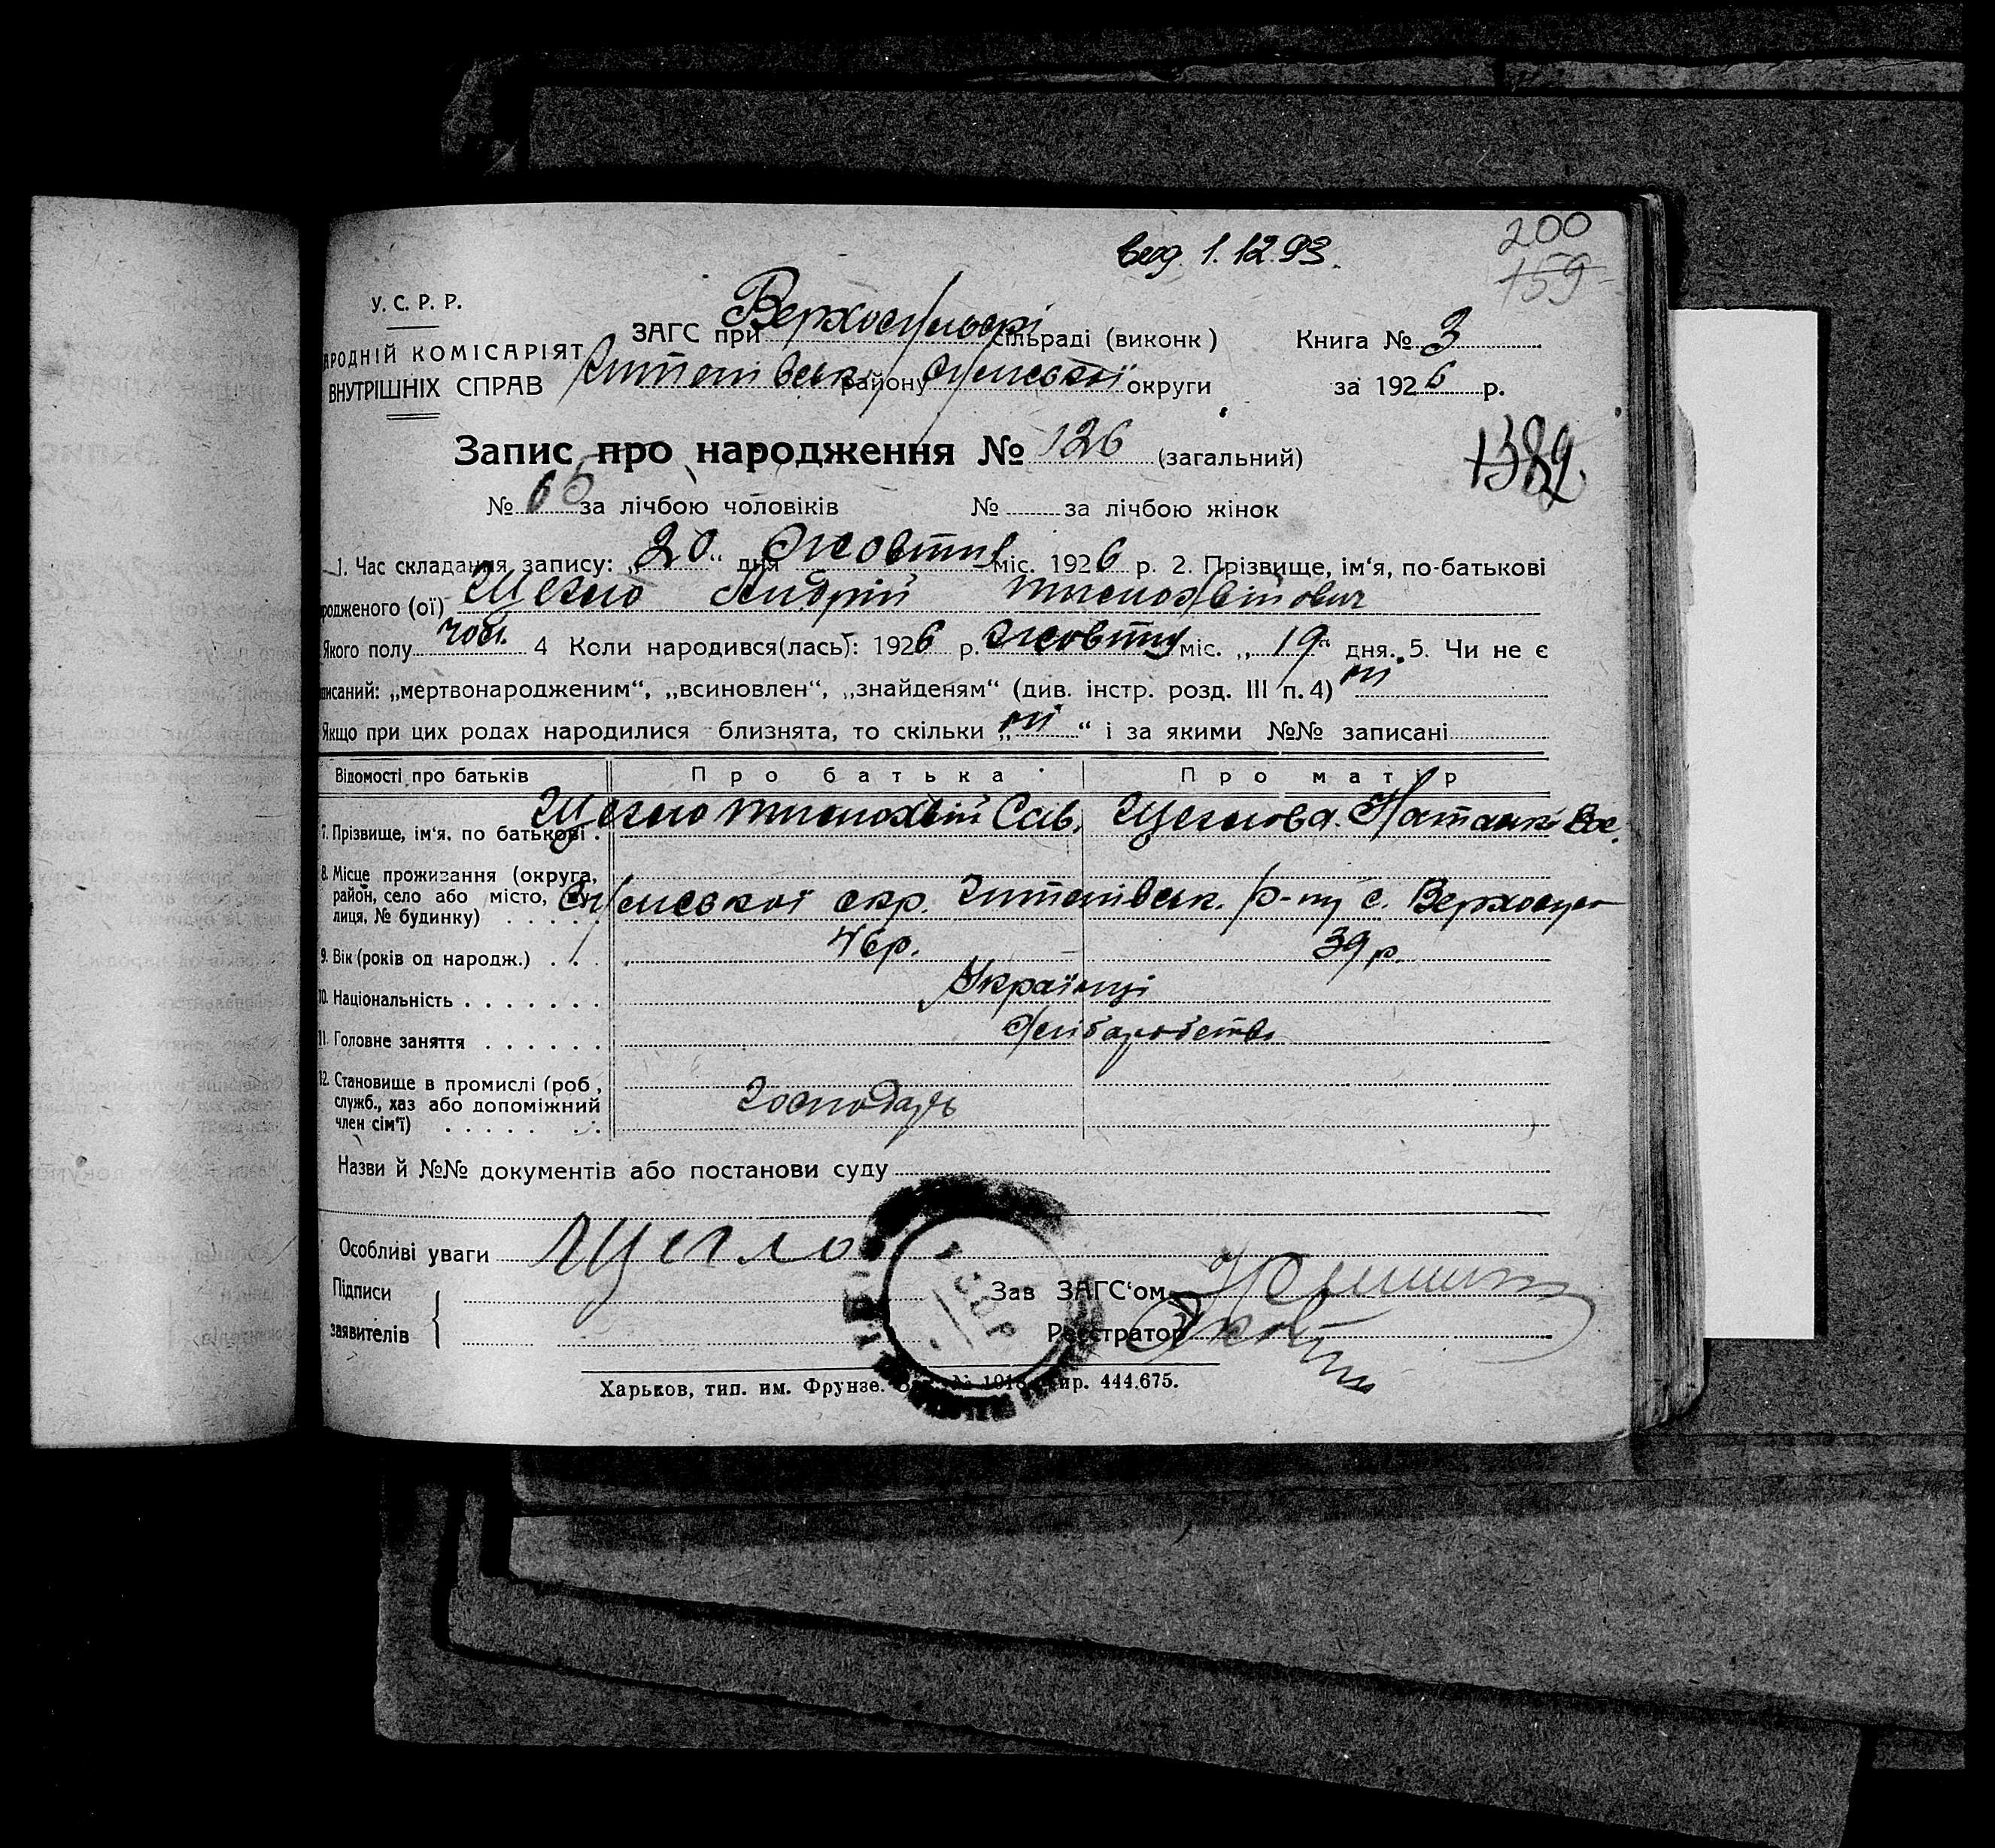 вид. 1.12.93.
200
159
У. С. Р. Р.
АРОДНІЙ КОМІСАРІЯТ
ВНУТРІШНІХ СПРАВ
ЗАГС при Верхосульскі сільраді (виконк)
Штепівськ району Сумської округи
Книга № 3
за 1926 р.
Запис про народження № 126 (загальний)
1382
№ 65 за лічбою чоловіків № за лічбою жінок
1. Час складання запису: „20“ дня Жовтня міс. 1926 р. 2. Прізвище, ім‘я, по-батькові
родженого (ої) Щегло Андрій Тимохвійович
Якого полу чол. 4 Коли народився(лась): 1926 р. Жовтня міс. „19“ дня. 5. Чи не є
писаний: „мертвонародженим“, „всиновлен“, „знайденям“ (див. інстр. розд. III п. 4) ні
Якщо при цих родах народилися близнята, то скільки „ні“ і за якими №№ записані
Відомості про батьків Про батька Про матір
7. Прізвище, ім‘я, по батькові Щегло Тимохвій Сав. Щеглова Наталка Вас.
8. Місце проживання (округа,
район, село або місто, ву-
лиця, № будинку) Сумської окр. Штепівськ. р-ну с. Верхосула
9. Вік (років од народж.) 46р. 39р.
10. Національність Українці
11. Головне заняття Хліборобство
12. Становище в промислі (роб,
служб., хаз або допоміжний
член сім‘ї) Господарь
Назви й №№ документів або постанови суду
Особливі уваги Щегло
Підписи
заявителів
Зав ЗАГС‘ом
Реєстратор
Харьков, тип. им. Фрунзе. № 1018 тир. 444.675.